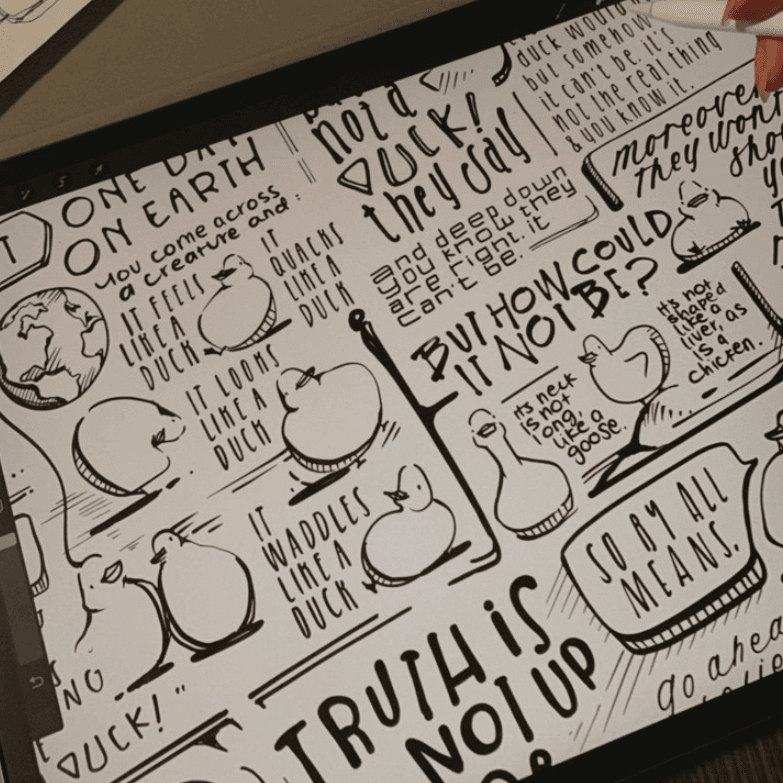 ONE DAY
ON EARTH
you come across
a creature and:
IT FEELS
LIKE A
DUCK
IT
QUACKS
LIKE A
DUCK
IT LOOKS
LIKE A
DUCK
IT
WADDLES
LIKE A
DUCK
NO
DUCK!"
not a
DUCK!
they say
and deep down
you know they
are right. it
can't be.
duck would
but somehow
it can't be. it's
not the real thing
& you know it.
moreover
they won't
BUT HOW COULD
IT NOT BE?
its neck
is not
long,
like a
goose.
It's not
shaped
like a
liver, as
is a
chicken.
SO BY ALL
MEANS.
go ahead
TRUTH IS
NOT UP